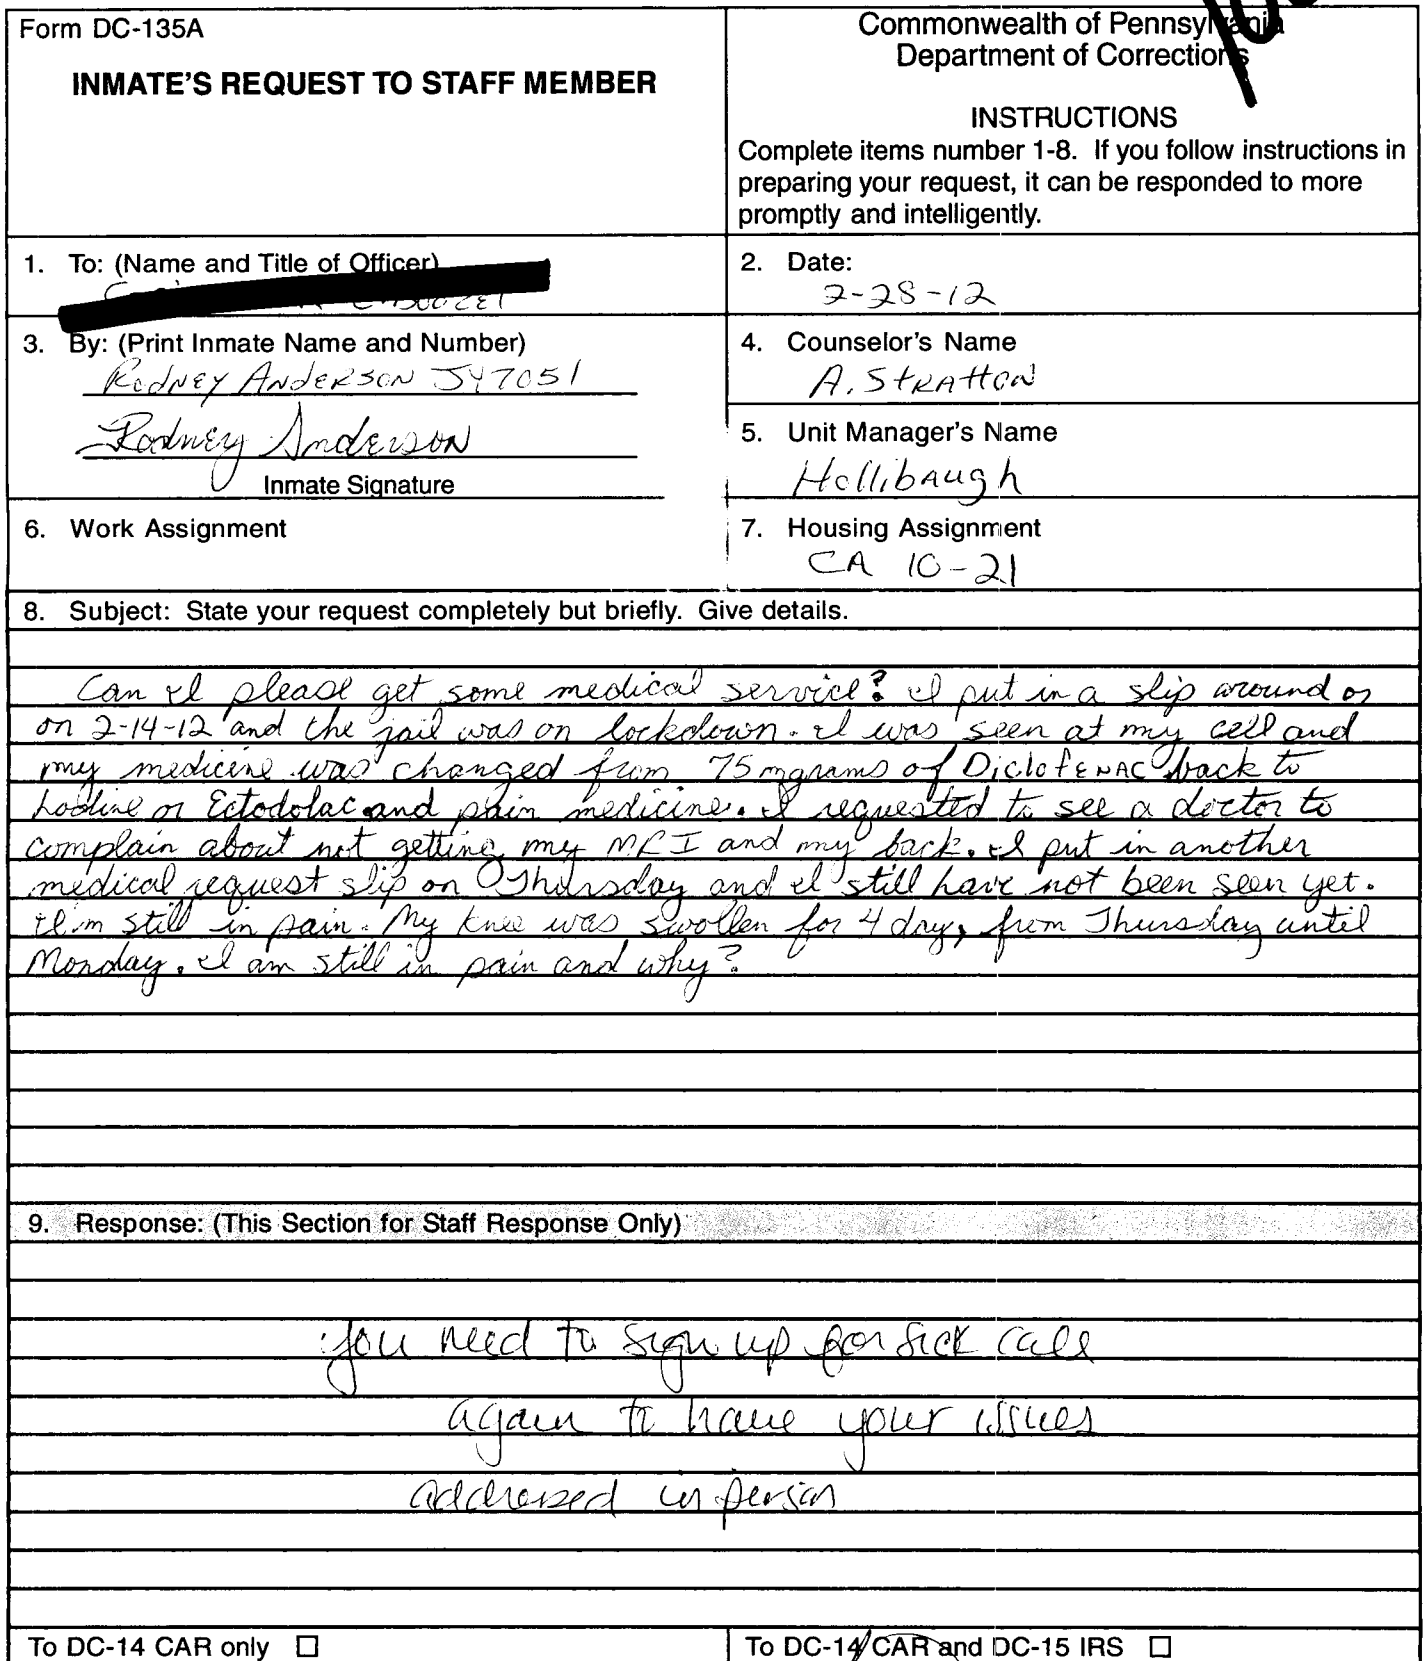 Form DC-135A
INMATE'S REQUEST TO STAFF MEMBER
Commonwealth of Pennsylvania
Department of Corrections
INSTRUCTIONS
Complete items number 1-8. If you follow instructions in
preparing your request, it can be responded to more
promptly and intelligently.
1. To: (Name and Title of Officer)
2. Date:
2-28-12
3. By: (Print Inmate Name and Number)
Rodney Anderson JY7051
Rodney Anderson
Inmate Signature
4. Counselor's Name
A. Stratton
5. Unit Manager's Name
Hollibaugh
6. Work Assignment
7. Housing Assignment
CA 10-21
8. Subject: State your request completely but briefly. Give details.
Can I please get some medical service? I put in a slip around or
on 2-14-12 and the jail was on lockdown. I was seen at my cell and
my medicine was changed from 75 mgrams of Diclofenac back to
Lodine or Ectodolac and pain medicine. I requested to see a doctor to
complain about not getting my MRI and my back. I put in another
medical request slip on Thursday and I still have not been seen yet.
I'm still in pain. My knee was swollen for 4 day, from Thursday until
Monday. I am still in pain and why?
9. Response: (This Section for Staff Response Only)
you need to sign up for sick call
again to have your issues
addressed in person
To DC-14 CAR only
To DC-14 CAR and DC-15 IRS